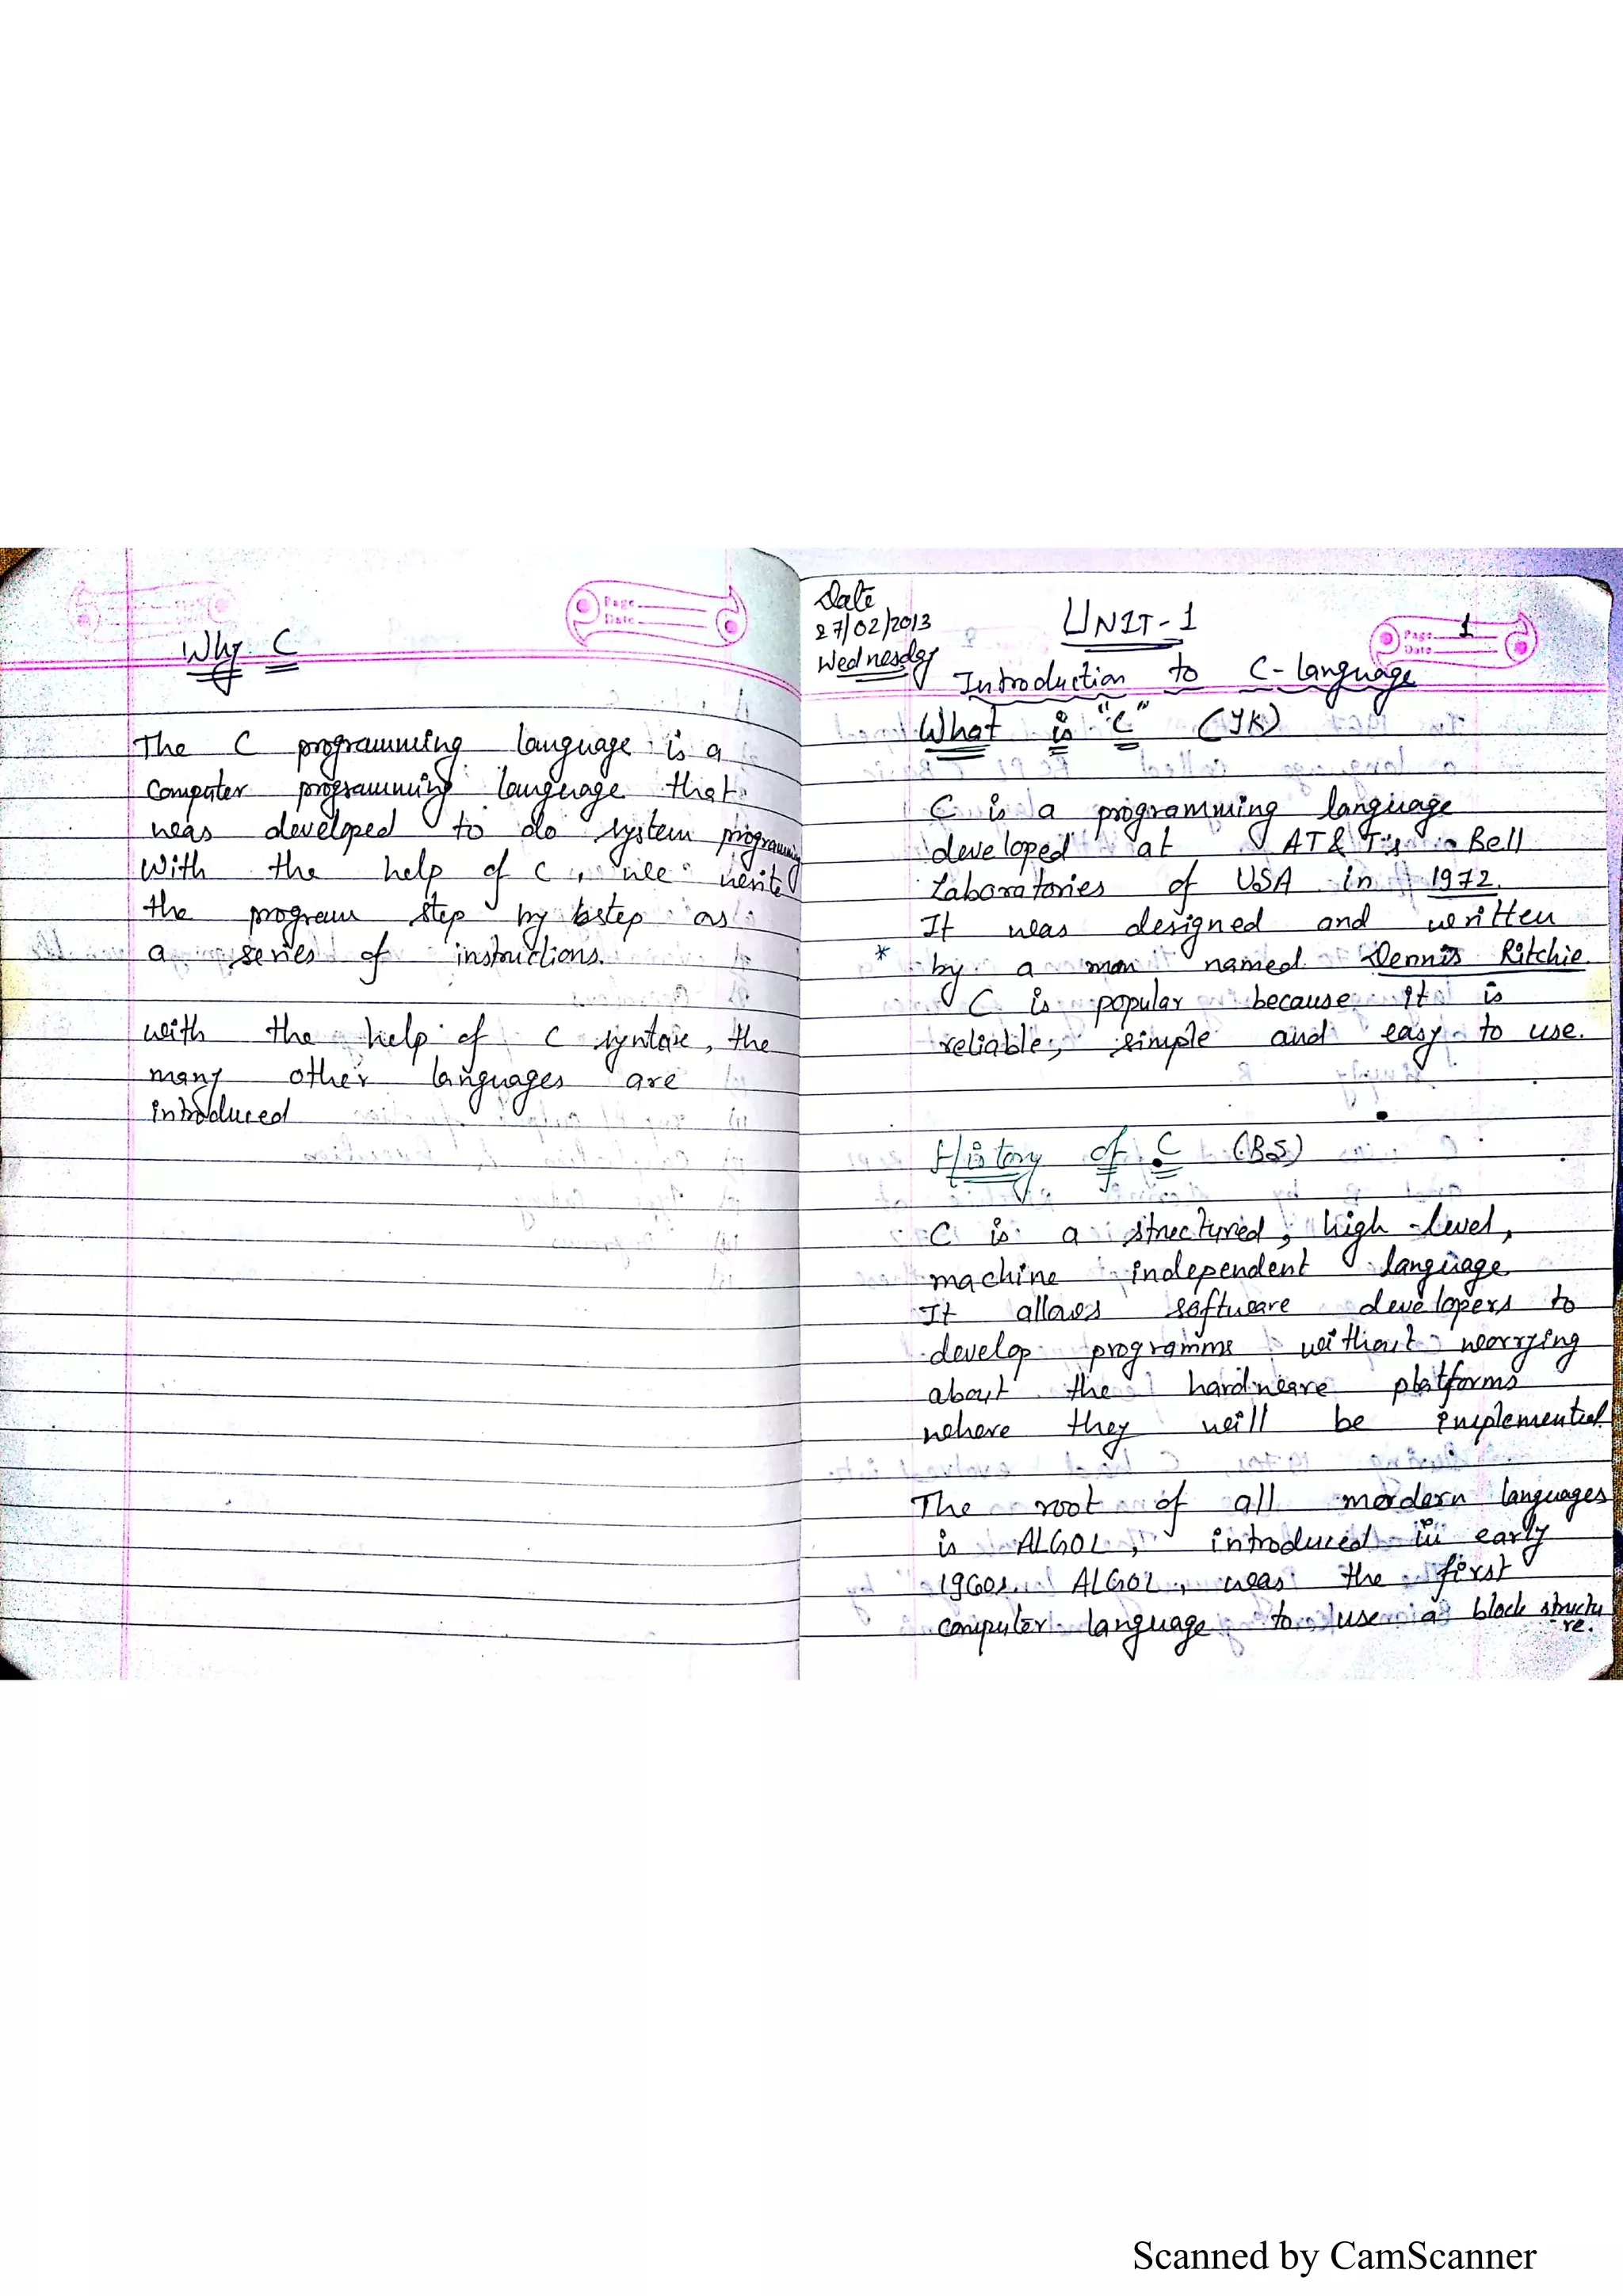 Page
Date
Why C
The C programming language is a
Computer programming language that
was developed to do system programming
With the help of C, we write
the program step by step as
a series of instructions.
with the help of C syntax, the
many other languages are
introduced
Date
27/02/2013
Wednesday
UNIT-1
Page 1
Date
Introduction to C-Language
What is "C" (YK)
C is a programming language
developed at AT& T's Bell
Laboratories of USA in 1972.
It was designed and written
* by a man named Dennis Ritchie.
C is popular because it is
reliable, simple and easy to use.
History of C (BS)
C is a structured, high-level,
machine independent language
It allows software developers to
develop programms without worrying
about the hardware platforms
where they will be implemented.
The root of all mordern languages
is ALGOL, introduced in early
1960s. ALGOL, was the first
computer language to use a block structu
-re.
Scanned by CamScanner